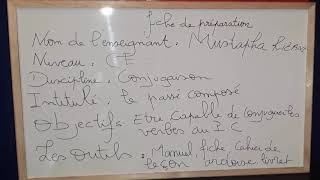 fiche de préparation
Nom de l'enseignant : Mustapha
Niveau : CE
Discipline : Conjugaison
Intitulé : le passé composé
Objectifs : Etre capable de conjuguer les
verbes au P.C
Les outils : Manuel, fiche, cahier de
leçon ardoise livret